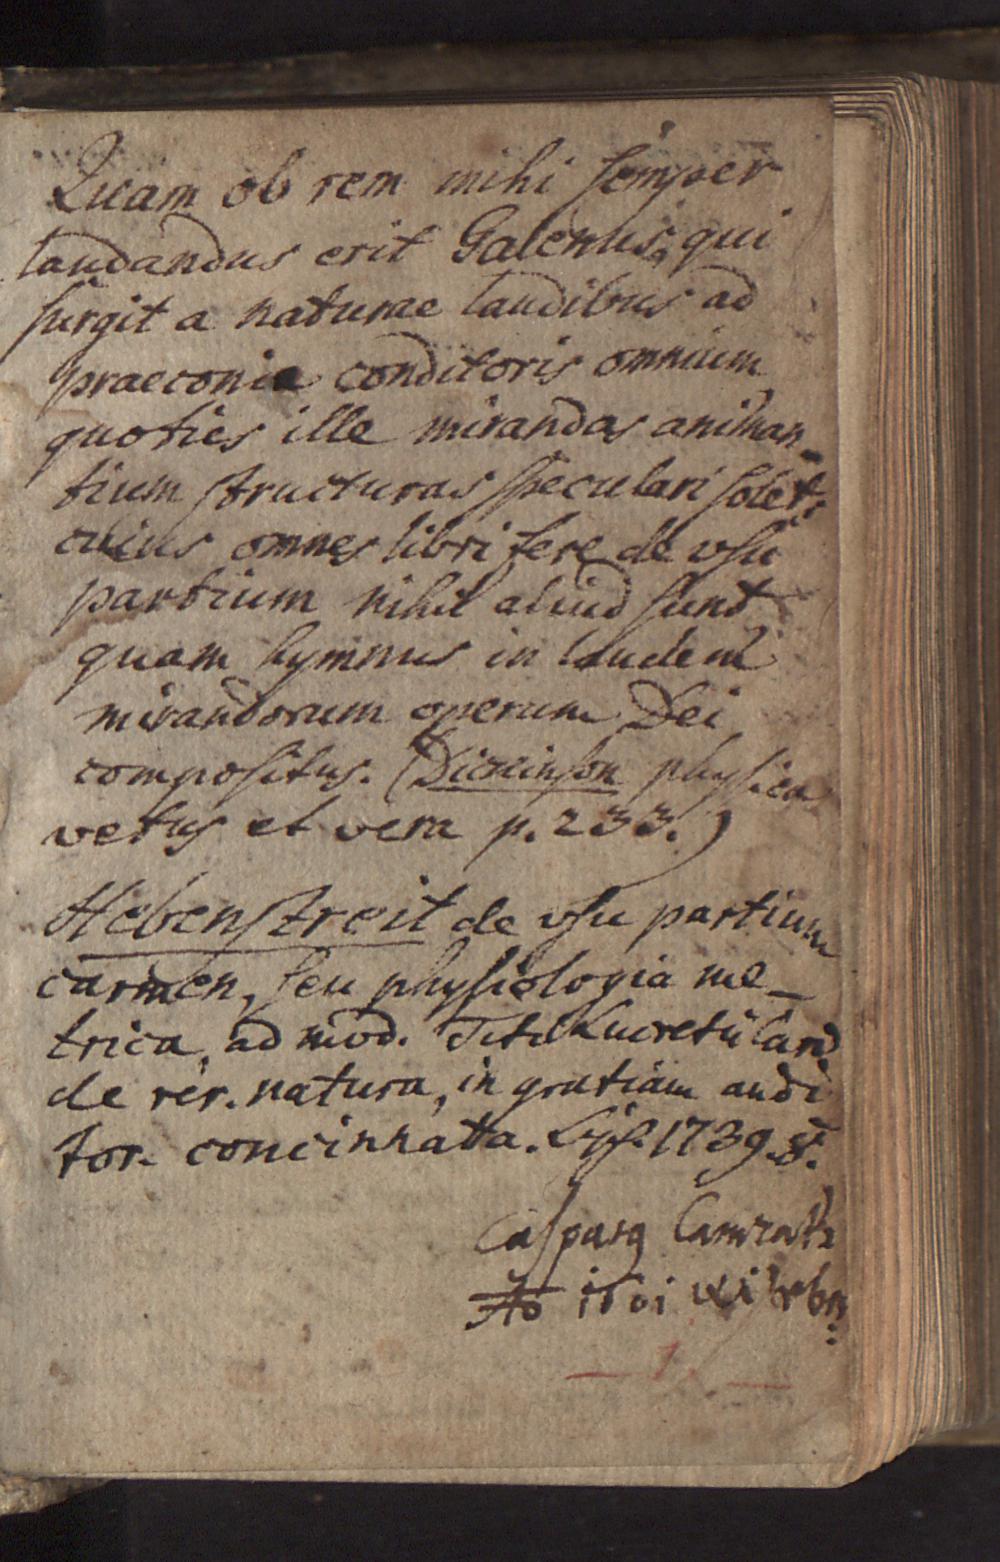 Quam ob rem mihi semper
laudandus erit Galenus, qui
surgit a naturae laudibus ad
praeconia conditoris omnium
quoties ille mirandas animan-
tium structuras speculari solet,
cuius omnes libri fere de vsu
partium nihil aliud sunt
quam hymnus in laudem
mirandorum operum Dei
compositus. (Dickinson physica
vetus et vera p. 233.)
Hebenstreit de vsu partium
carmen, seu physiologia me-
trica, ad mod. Titi Lucretii Cari
de rer. natura, in gratiam audi
tor. concinnata. Lips. 1739. 8.
Casparq
Ao
1.